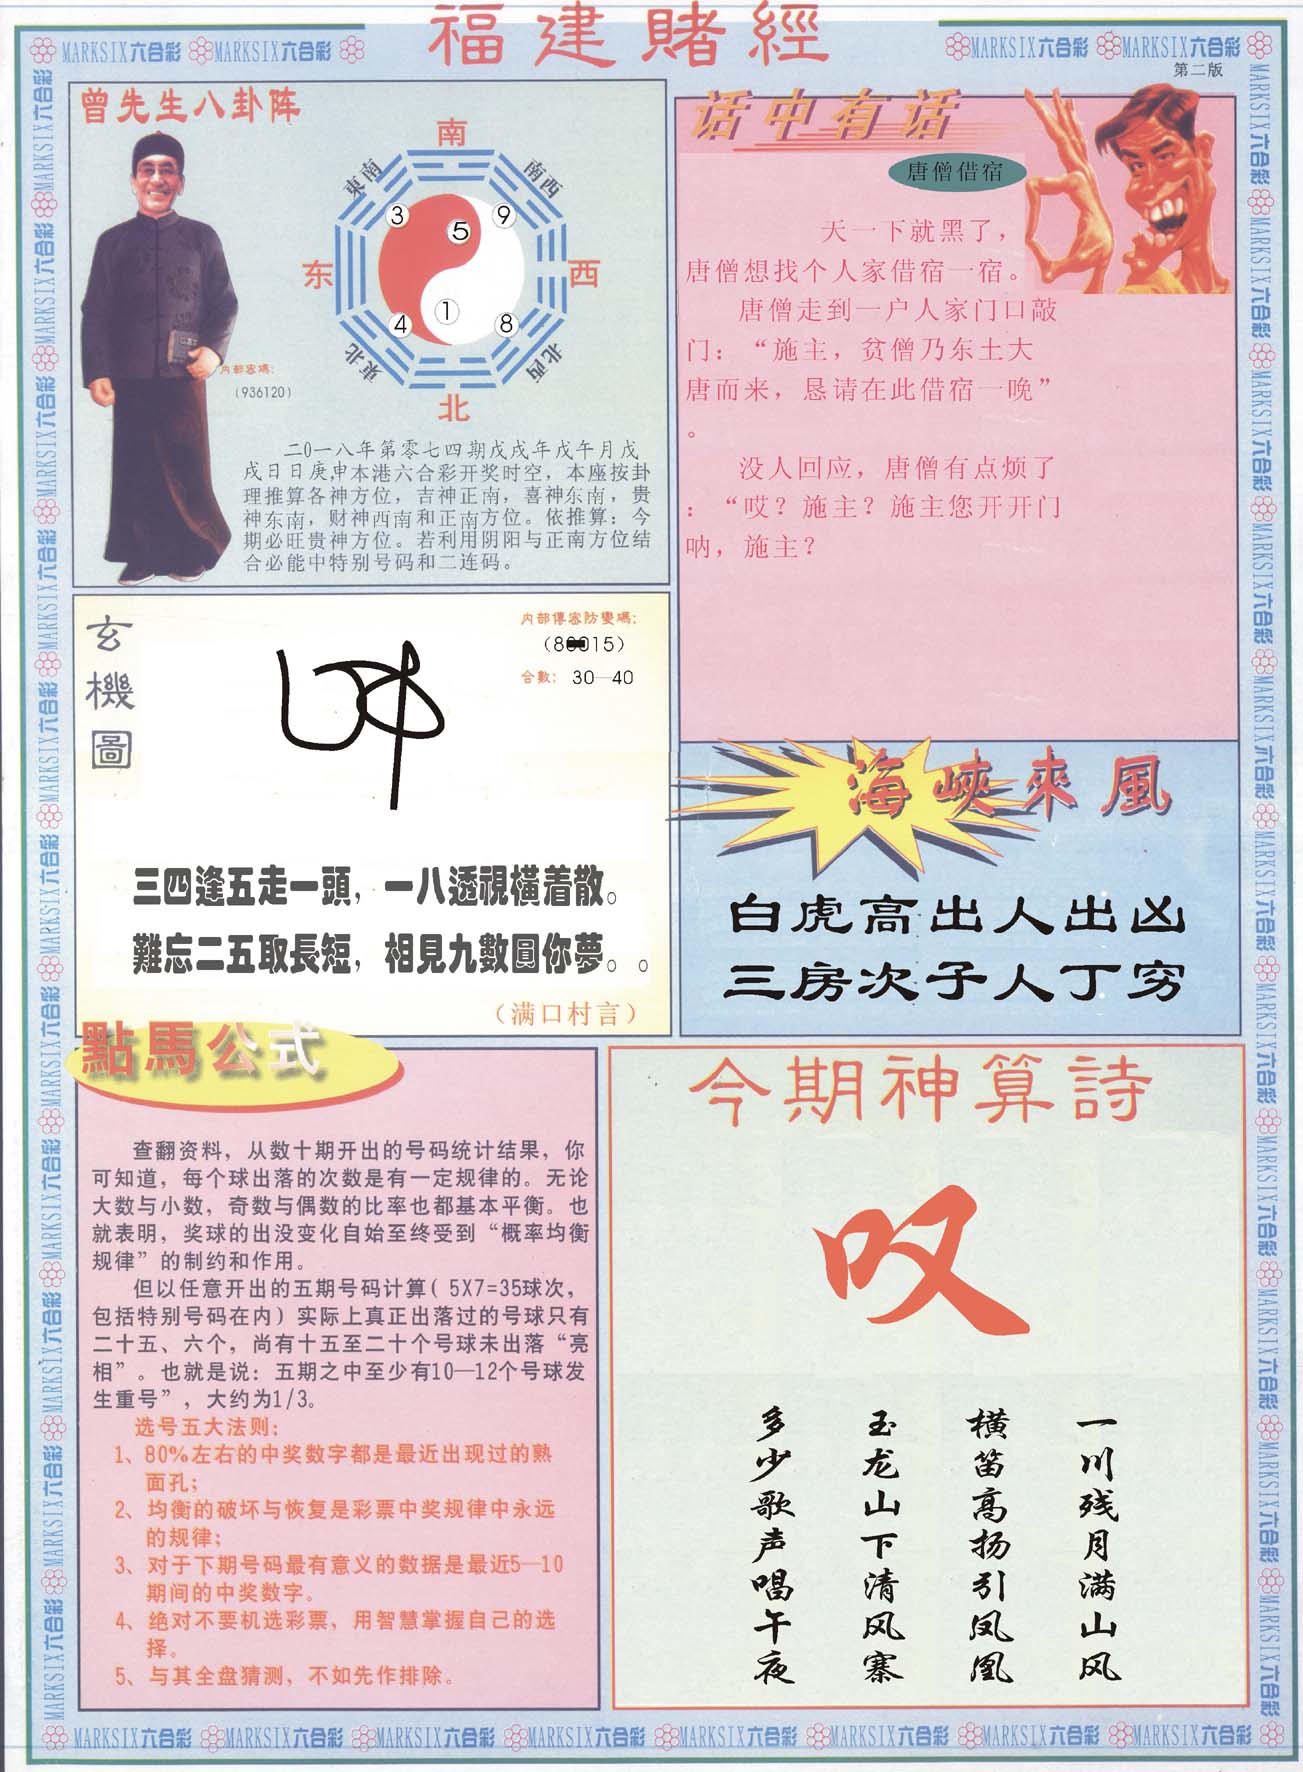 福建賭經
MARKSIX六合彩 MARKSIX六合彩
MARKSIX六合彩 MARKSIX六合彩
第二版
曾先生八卦阵
南
東南
南西
3
5
9
东
西
4
1
8
東北
北西
北
内部密碼：
（936120）
二0一八年第零七四期戊戌年戊午月戊
戌日日庚,申本港六合彩开奖时空，本座按卦
理推算各神方位，吉神正南，喜神东南，贵
神东南，财神西南和正南方位。依推算：今
期必旺贵神方位。若利用阴阳与正南方位结
合必能中特别号码和二连码。
话中有话
唐僧借宿
天一下就黑了，
唐僧想找个人家借宿一宿。
唐僧走到一户人家门口敲
门：“施主，贫僧乃东土大
唐而来，恳请在此借宿一晚”
。
没人回应，唐僧有点烦了
：“哎？施主？施主您开开门
呐，施主？
玄機圖
内部傳密防變碼：
15）
合數： 30—40
三四逢五走一頭，一八透視橫着散。
難忘二五取長短，相見九數圓你夢。。
（满口村言）
海峽來風
白虎高出人出凶
三房次子人丁穷
點馬公式
查翻资料，从数十期开出的号码统计结果，你
可知道，每个球出落的次数是有一定规律的。无论
大数与小数，奇数与偶数的比率也都基本平衡。也
就表明，奖球的出没变化自始至终受到“概率均衡
规律”的制约和作用。
但以任意开出的五期号码计算( 5X7=35球次，
包括特别号码在内）实际上真正出落过的号球只有
二十五、六个，尚有十五至二十个号球未出落“亮
相”。也就是说：五期之中至少有10—12个号球发
生重号”，大约为1/3。
选号五大法则：
1、80%左右的中奖数字都是最近出现过的熟
面孔；
2、均衡的破坏与恢复是彩票中奖规律中永远
的规律；
3、对于下期号码最有意义的数据是最近5—10
期间的中奖数字。
4、绝对不要机选彩票，用智慧掌握自己的选
择。
5、与其全盘猜测，不如先作排除。
今期神算詩
叹
一川残月满山风
横笛高扬引凤凰
玉龙山下清风寨
多少歌声唱午夜
MARKSIX六合彩 MARKSIX六合彩 MARKSIX六合彩 MARKSIX六合彩 MARKSIX六合彩 MARKSIX六合彩 MARKSIX六合彩 MARKSIX六合彩